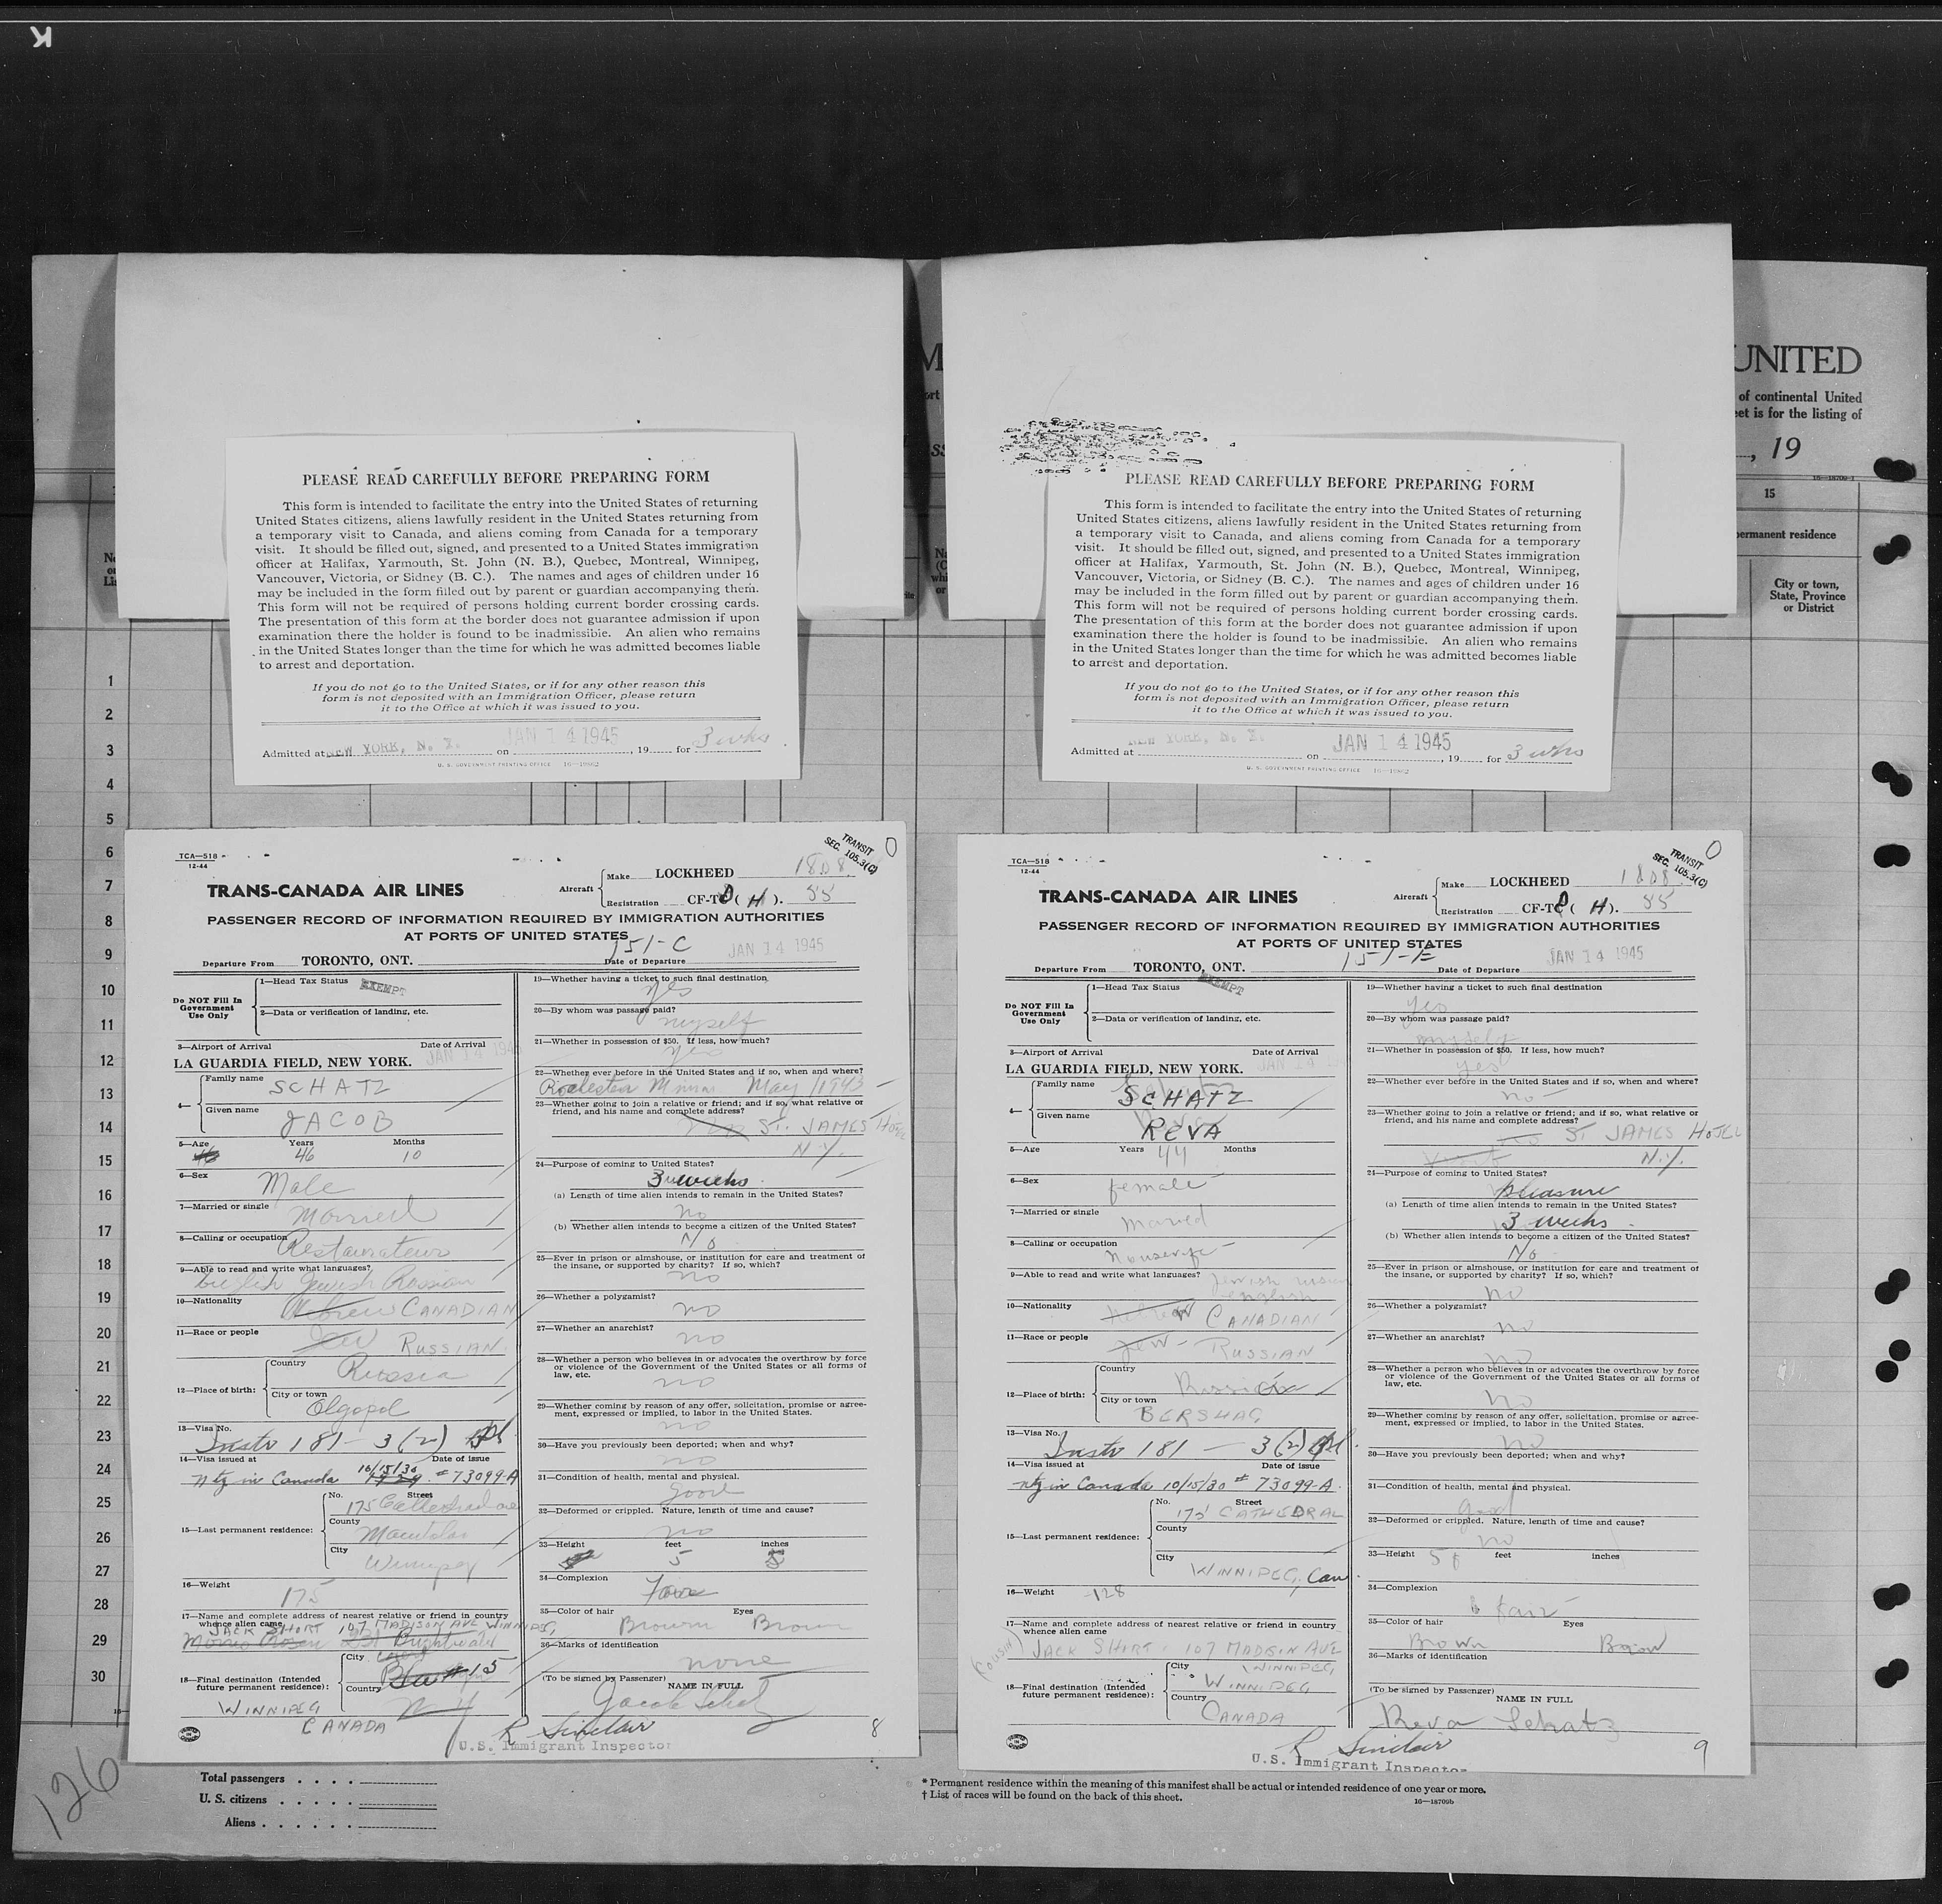 K
UNITED
of continental United
eet is for the listing of
, 19
16—18709-1
15
permanent residence
City or town,
State, Province
or District
PLEASE READ CAREFULLY BEFORE PREPARING FORM
This form is intended to facilitate the entry into the United States of returning
United States citizens, aliens lawfully resident in the United States returning from
a temporary visit to Canada, and aliens coming from Canada for a temporary
visit. It should be filled out, signed, and presented to a United States immigration
officer at Halifax, Yarmouth, St. John (N. B.), Quebec, Montreal, Winnipeg,
Vancouver, Victoria, or Sidney (B. C.). The names and ages of children under 16
may be included in the form filled out by parent or guardian accompanying them.
This form will not be required of persons holding current border crossing cards.
The presentation of this form at the border does not guarantee admission if upon
examination there the holder is found to be inadmissible. An alien who remains
in the United States longer than the time for which he was admitted becomes liable
to arrest and deportation.
If you do not go to the United States, or if for any other reason this
form is not deposited with an Immigration Officer, please return
it to the Office at which it was issued to you.
Admitted at NEW YORK, N. Y. on JAN 14 1945, 19 for 3 wks
U. S. GOVERNMENT PRINTING OFFICE 16—19862
PLEASE READ CAREFULLY BEFORE PREPARING FORM
This form is intended to facilitate the entry into the United States of returning
United States citizens, aliens lawfully resident in the United States returning from
a temporary visit to Canada, and aliens coming from Canada for a temporary
visit. It should be filled out, signed, and presented to a United States immigration
officer at Halifax, Yarmouth, St. John (N. B.), Quebec, Montreal, Winnipeg,
Vancouver, Victoria, or Sidney (B. C.). The names and ages of children under 16
may be included in the form filled out by parent or guardian accompanying them.
This form will not be required of persons holding current border crossing cards.
The presentation of this form at the border does not guarantee admission if upon
examination there the holder is found to be inadmissible. An alien who remains
in the United States longer than the time for which he was admitted becomes liable
to arrest and deportation.
If you do not go to the United States, or if for any other reason this
form is not deposited with an Immigration Officer, please return
it to the Office at which it was issued to you.
Admitted at NEW YORK, N. Y. on JAN 14 1945, 19 for 3 wks
U. S. GOVERNMENT PRINTING OFFICE 16—19862
1
2
3
4
5
6
7
8
9
10
11
12
13
14
15
16
17
18
19
20
21
22
23
24
25
26
27
28
29
30
TCA—518
12-44
TRANSIT
SEC. 105.3(C)
0
TRANS-CANADA AIR LINES
Aircraft
Make LOCKHEED 1808
Registration CF-TC ( H ). 55
PASSENGER RECORD OF INFORMATION REQUIRED BY IMMIGRATION AUTHORITIES
AT PORTS OF UNITED STATES
151-C
JAN 14 1945
Departure From TORONTO, ONT. Date of Departure
Do NOT Fill In
Government
Use Only
1—Head Tax Status EXEMPT
2—Data or verification of landing, etc.
3—Airport of Arrival Date of Arrival
LA GUARDIA FIELD, NEW YORK. JAN 14 194
4— Family name SCHATZ
Given name JACOB
5—Age Years 46 Months 10
6—Sex Male
7—Married or single Married
8—Calling or occupation Restaurateur
9—Able to read and write what languages?
English Jewish Russian
10—Nationality Hebrew CANADIAN
11—Race or people Jew RUSSIAN
12—Place of birth: Country Russia
City or town Olgopol
13—Visa No. Instr 181 - 3(2)
14—Visa issued at Date of issue
ntz in Canada 10/15/30 # 73099-A
15—Last permanent residence: No. Street 175 Cathedral ave
County Manitoba
City Winnipeg
16—Weight 175
17—Name and complete address of nearest relative or friend in country
whence alien came
JACK SHORT 107 MADISON AVE WINNIPEG
18—Final destination (Intended
future permanent residence):
City
Country
WINNIPEG
CANADA
19—Whether having a ticket to such final destination
yes
20—By whom was passage paid?
myself
21—Whether in possession of $50. If less, how much?
yes
22—Whether ever before in the United States and if so, when and where?
Rochester Minn May 1943
23—Whether going to join a relative or friend; and if so, what relative or
friend, and his name and complete address?
ST. JAMES HOTEL
N.Y.
24—Purpose of coming to United States?
3 weeks
(a) Length of time alien intends to remain in the United States?
no
(b) Whether alien intends to become a citizen of the United States?
No
25—Ever in prison or almshouse, or institution for care and treatment of
the insane, or supported by charity? If so, which?
no
26—Whether a polygamist?
no
27—Whether an anarchist?
no
28—Whether a person who believes in or advocates the overthrow by force
or violence of the Government of the United States or all forms of
law, etc.
no
29—Whether coming by reason of any offer, solicitation, promise or agree-
ment, expressed or implied, to labor in the United States.
no
30—Have you previously been deported; when and why?
no
31—Condition of health, mental and physical.
good
32—Deformed or crippled. Nature, length of time and cause?
no
33—Height feet inches
5
34—Complexion
35—Color of hair Eyes
Brown Brown
36—Marks of identification
none
(To be signed by Passenger) NAME IN FULL
Jacob Schatz
R Sinclair
U.S. Immigrant Inspector
8
TCA—518
12-44
TRANSIT
SEC. 105.3(C)
0
TRANS-CANADA AIR LINES
Aircraft
Make LOCKHEED 1808
Registration CF-TC ( H ). 55
PASSENGER RECORD OF INFORMATION REQUIRED BY IMMIGRATION AUTHORITIES
AT PORTS OF UNITED STATES
151-E
JAN 14 1945
Departure From TORONTO, ONT. Date of Departure
Do NOT Fill In
Government
Use Only
1—Head Tax Status EXEMPT
2—Data or verification of landing, etc.
3—Airport of Arrival Date of Arrival
LA GUARDIA FIELD, NEW YORK. JAN 14 19
4— Family name SCHATZ
Given name REVA
5—Age Years 44 Months
6—Sex female
7—Married or single Married
8—Calling or occupation
housewife
9—Able to read and write what languages? Jewish
english
10—Nationality CANADIAN
11—Race or people Jew RUSSIAN
12—Place of birth: Country Russia
City or town BERSHAC
13—Visa No. Instr 181 — 3(2)
14—Visa issued at Date of issue
ntz in Canada 10/15/30 # 73099-A
15—Last permanent residence: No. Street 175 CATHEDRAL
County
City WINNIPEG, Can.
16—Weight 128
17—Name and complete address of nearest relative or friend in country
whence alien came
(COUSIN) JACK SHORT. 107 MADISON AVE
WINNIPEG
18—Final destination (Intended
future permanent residence):
City WINNIPEG
Country CANADA
19—Whether having a ticket to such final destination
yes
20—By whom was passage paid?
myself
21—Whether in possession of $50. If less, how much?
yes
22—Whether ever before in the United States and if so, when and where?
no
23—Whether going to join a relative or friend; and if so, what relative or
friend, and his name and complete address?
ST JAMES HOTEL
N.Y.
24—Purpose of coming to United States?
pleasure
(a) Length of time alien intends to remain in the United States?
3 weeks
(b) Whether alien intends to become a citizen of the United States?
No
25—Ever in prison or almshouse, or institution for care and treatment of
the insane, or supported by charity? If so, which?
no
26—Whether a polygamist?
no
27—Whether an anarchist?
no
28—Whether a person who believes in or advocates the overthrow by force
or violence of the Government of the United States or all forms of
law, etc.
no
29—Whether coming by reason of any offer, solicitation, promise or agree-
ment, expressed or implied, to labor in the United States.
no
30—Have you previously been deported; when and why?
31—Condition of health, mental and physical.
good
32—Deformed or crippled. Nature, length of time and cause?
no
33—Height 5 feet inches
34—Complexion
fair
35—Color of hair Eyes
Brown Brown
36—Marks of identification
(To be signed by Passenger) NAME IN FULL
Reva Schatz
R Sinclair
U.S. Immigrant Inspector
9
126
Total passengers . . . .
U. S. citizens . . . . .
Aliens . . . . . .
* Permanent residence within the meaning of this manifest shall be actual or intended residence of one year or more.
† List of races will be found on the back of this sheet.
16—18709b